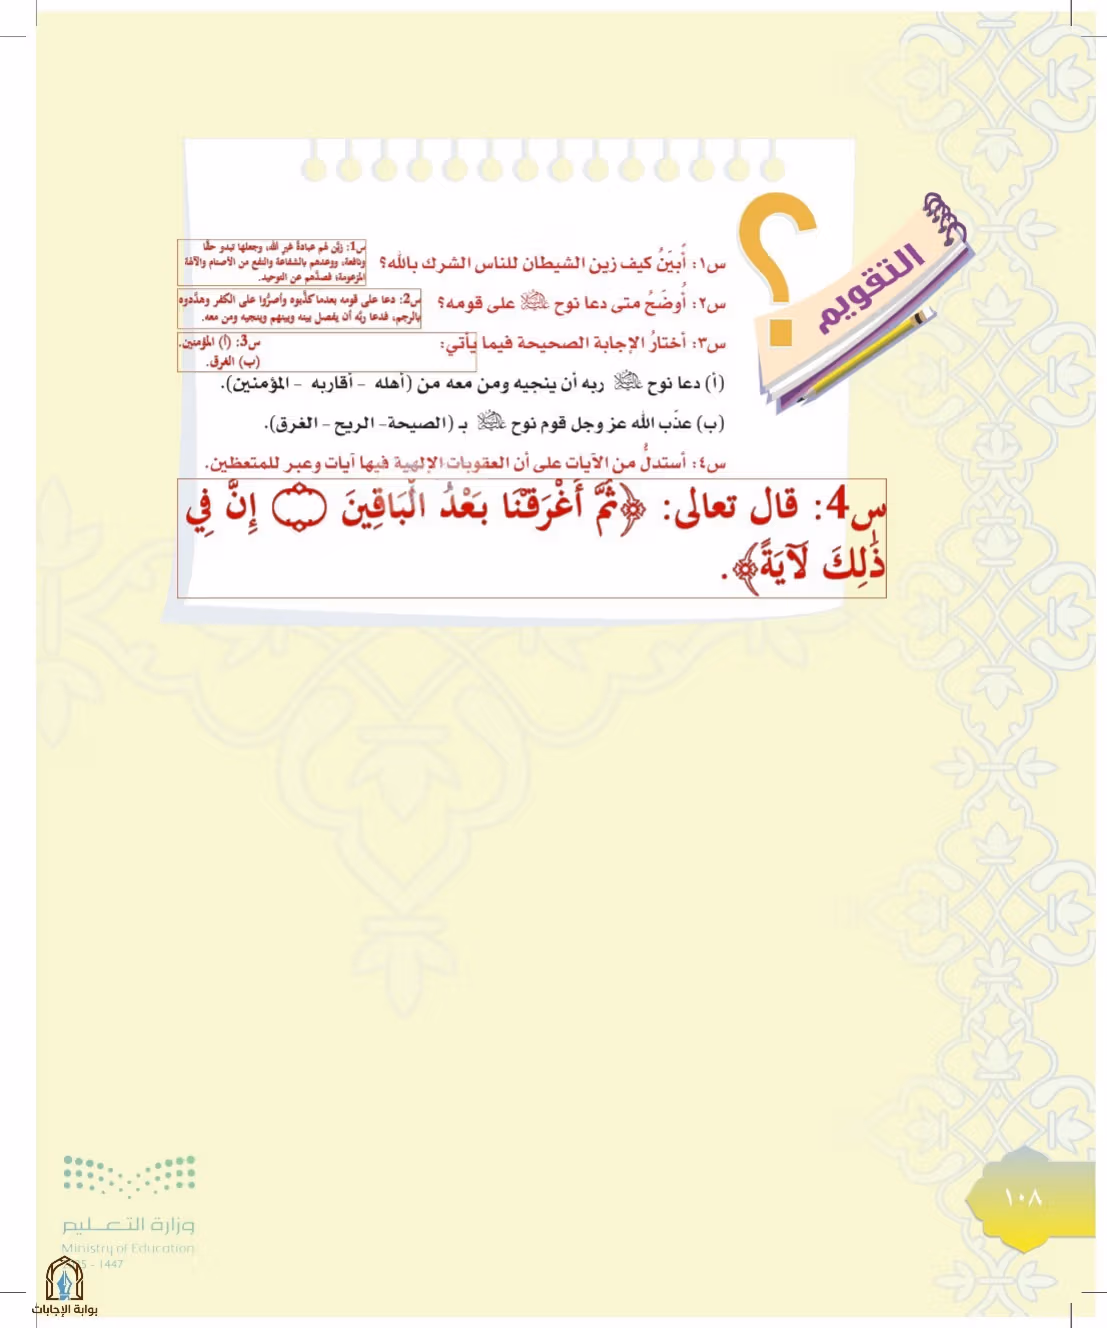 التقويم
س١: أُبيّنُ كيف زين الشيطان للناس الشرك بالله؟
س1: زيَّن لهم عبادةَ غيرِ الله، وجعلها تبدو حقًا
ونافعة، ووعدهم بالشفاعة والنفع من الأصنام والآلهة
المزعومة؛ فصدَّهم عن التوحيد.
س٢: أُوضَحُ متى دعا نوح عليه السلام على قومه؟
س2: دعا على قومه بعدما كذَّبوه وأصرُّوا على الكفر وهدَّدوه
بالرجم، فدعا ربَّه أن يفصل بينه وبينهم وينجيه ومن معه.
س٣: أختارُ الإجابة الصحيحة فيما يأتي:
س3: (أ) المؤمنين.
(ب) الغرق.
(أ) دعا نوح عليه السلام ربه أن ينجيه ومن معه من (أهله - أقاربه - المؤمنين).
(ب) عذّب الله عز وجل قوم نوح عليه السلام بـ (الصيحة- الريح - الغرق).
س٤: أستدلُّ من الآيات على أن العقوبات الإلهية فيها آيات وعبر للمتعظين.
س4: قال تعالى: ﴿ثُمَّ أَغْرَقْنَا بَعْدُ الْبَاقِينَ ۝ إِنَّ فِي
ذَٰلِكَ لَآيَةً﴾.
وزارة التعليم
Ministry of Education
2025 - 1447
بوابة الإجابات
١٠٨